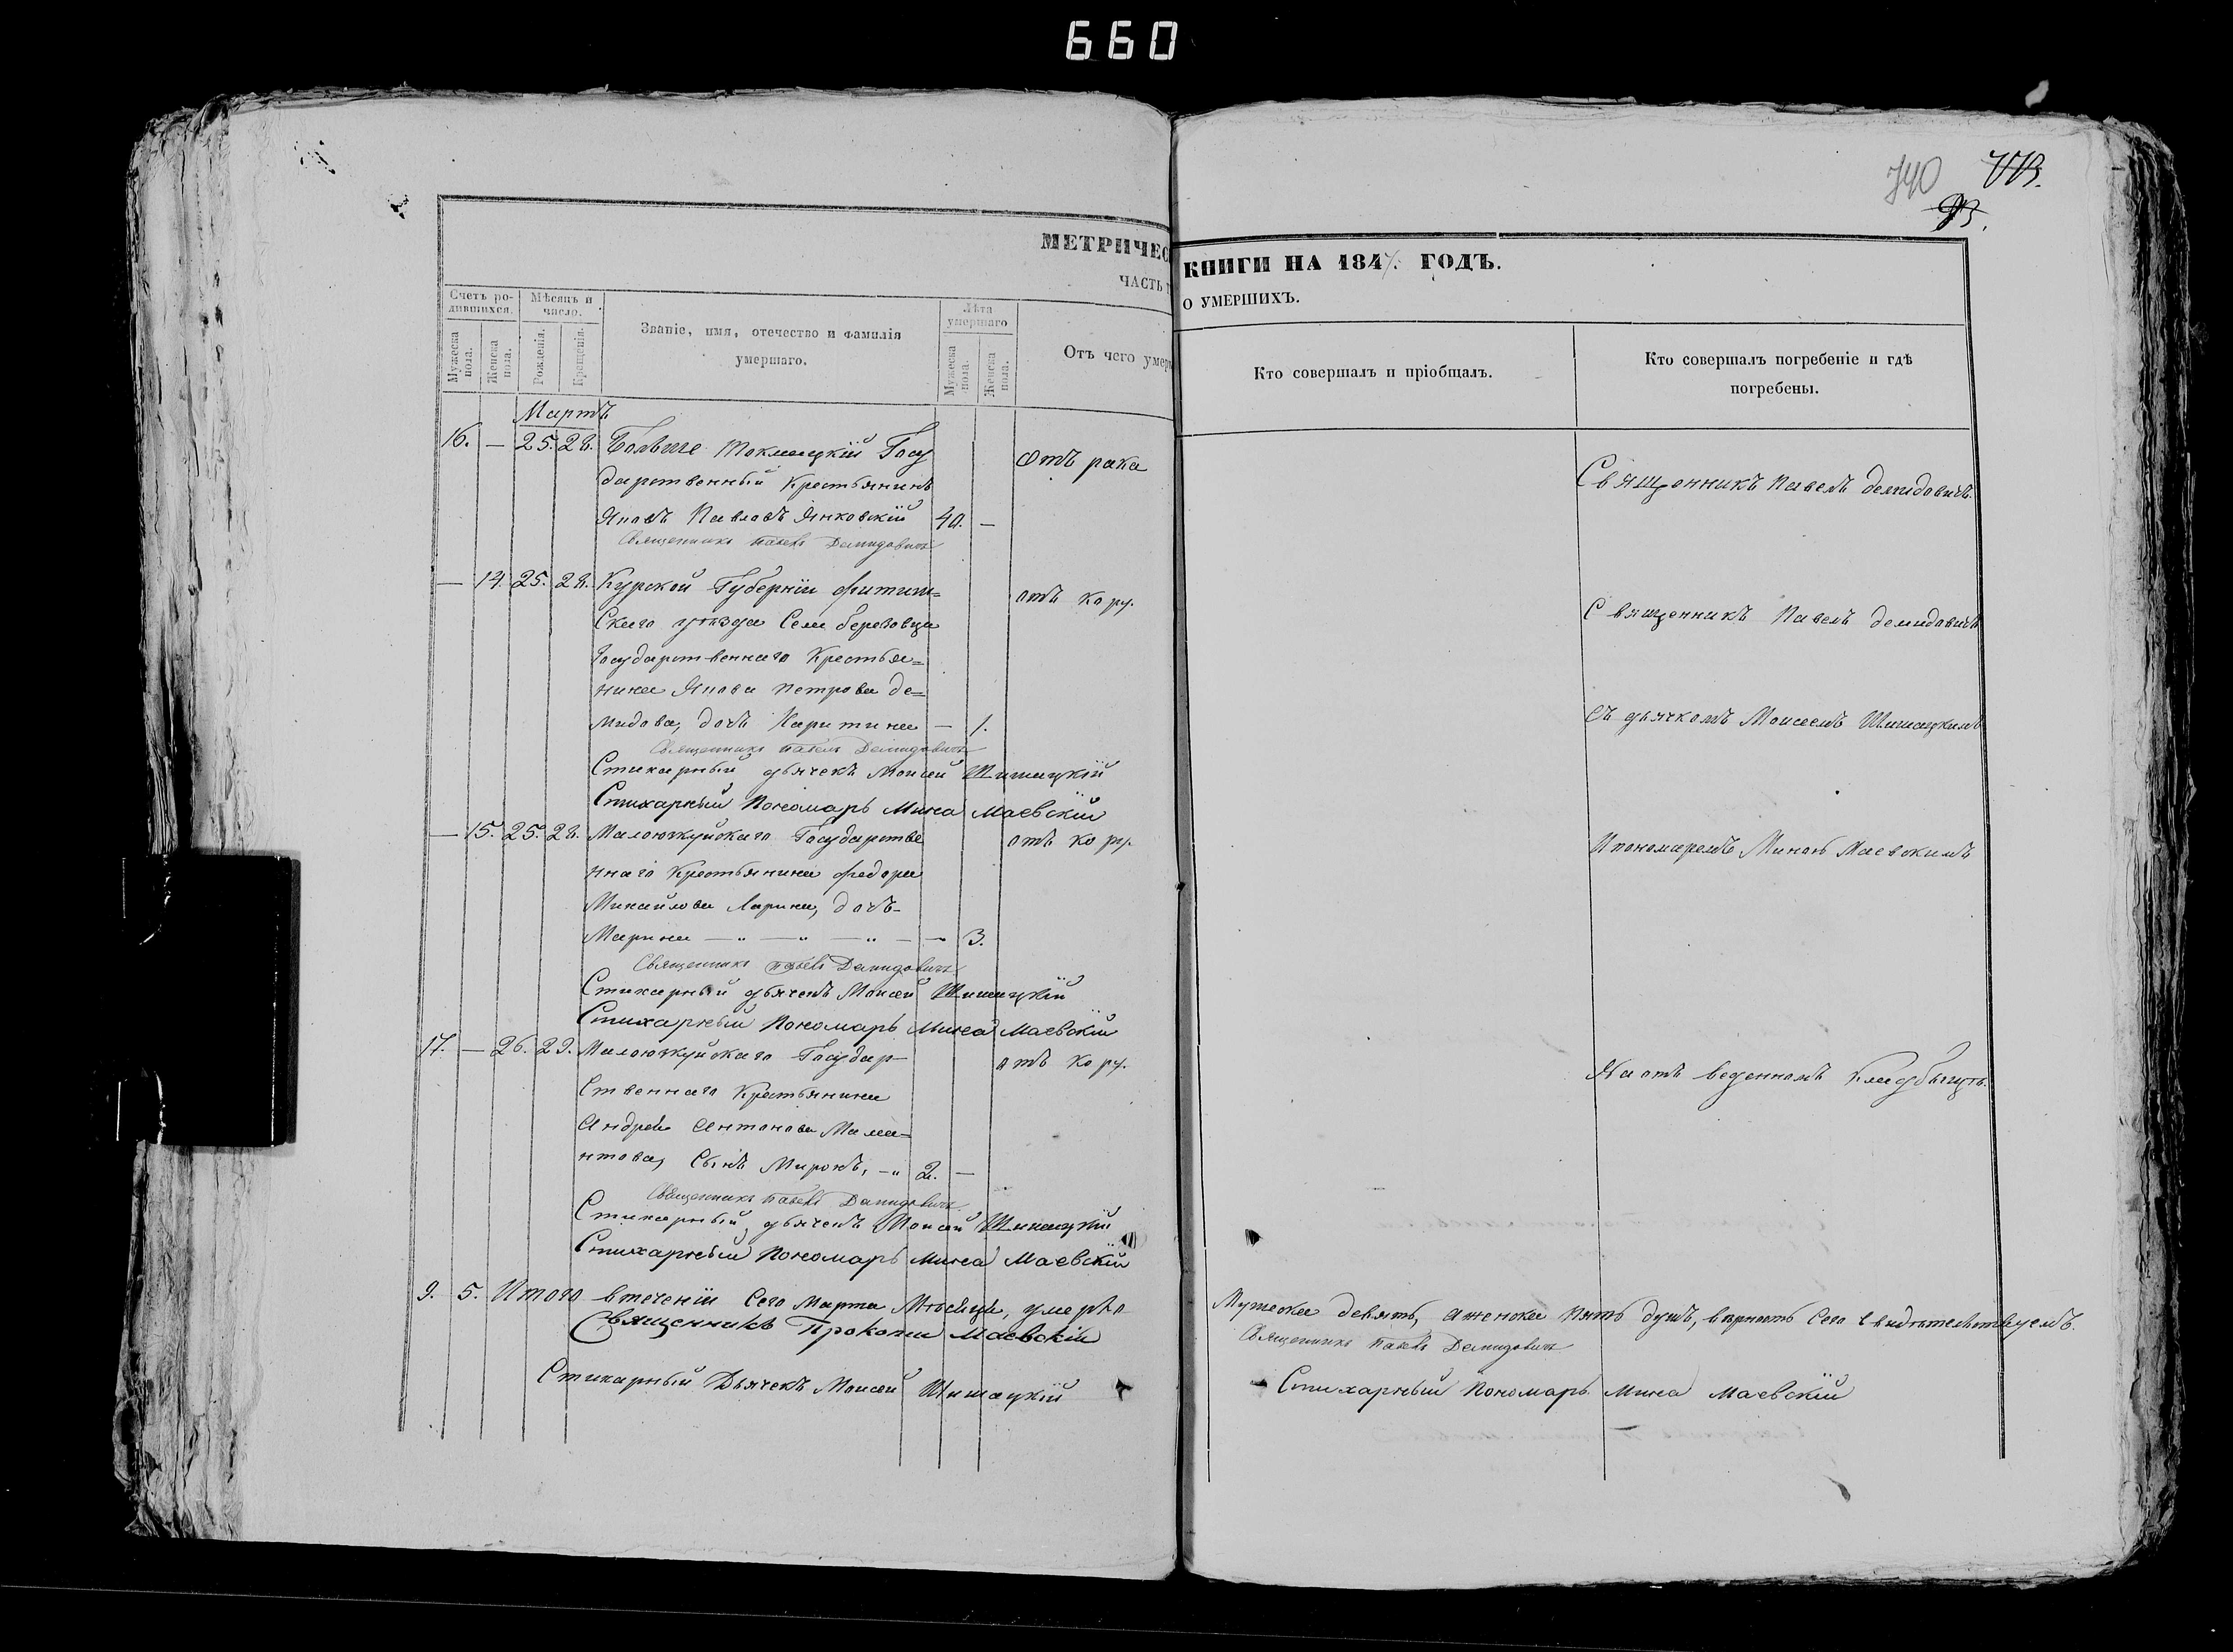 660
740
МЕТРИЧЕС
ЧАСТЬ
Счетъ ро-
дившихся.
Мѣсяцъ и
число.
Званіе, имя, отечество и фамилія
умершаго.
Лѣта
умершаго
Мужеска
пола.
Женска
пола.
Рожденія.
Крещенія.
Мужеска
пола.
Женска
пола.
Отъ чего умер
Мартъ
16. — 25. 28. Больше Токмацкій Госу
дарственный Крестьянинъ
Яковъ Павловъ Янковскій 40. —
Отъ рака
Священникъ Павелъ Демидовичъ
— 14. 25. 28. Курской Губерніи
Скаго уѣзда Села
Государственнаго Крестья=
нина Якова Петрова Де=
мидова, дочь Харитина — 1.
отъ кору.
Священникъ Павелъ Демидовичъ
Стихарный дьячекъ Моисей Шишацкій
Стихарный Пономарь Мина Маевскій
— 15. 25. 28. Государстве
ннаго Крестьянина Федора
Михайлова Ларина, дочь
Марина — „ — „ — „ — — 3.
отъ кору.
Священникъ Павелъ Демидовичъ
Стихарный дьячекъ Моисей Шишацкій
Стихарный Пономарь Мина Маевскій
17. — 26. 29. Государ-
Ственнаго Крестьянина
Андрея Антонова Мама=
нтова, Сынъ Миронъ, — „ 2. —
отъ кору.
Священникъ Павелъ Демидовичъ
Стихарный дьячекъ Моисей Шишацкій
Стихарный Пономарь Мина Маевскій
9. 5. Итого втеченіи Сего Марта Мѣсяца, умерло
Священникъ Прокопій Маевскій
Стихарный Дьячекъ Моисей Шишацкій
КНИГИ НА 1847. ГОДЪ.
О УМЕРШИХЪ.
Кто совершалъ и пріобщалъ.
Кто совершалъ погребеніе и гдѣ
погребены.
Священникъ Павелъ Демидовичъ
Священникъ Павелъ Демидовичъ
Съ дьячкомъ Моисеемъ Шишацкимъ
И пономаремъ Миною Маевскимъ
На отъ веденномъ Кладбищѣ.
Мужеска девять, а женска пять душъ, вѣрность Сего свидѣтельствуемъ.
Священникъ Павелъ Демидовичъ
Стихарный Пономарь Мина Маевскій